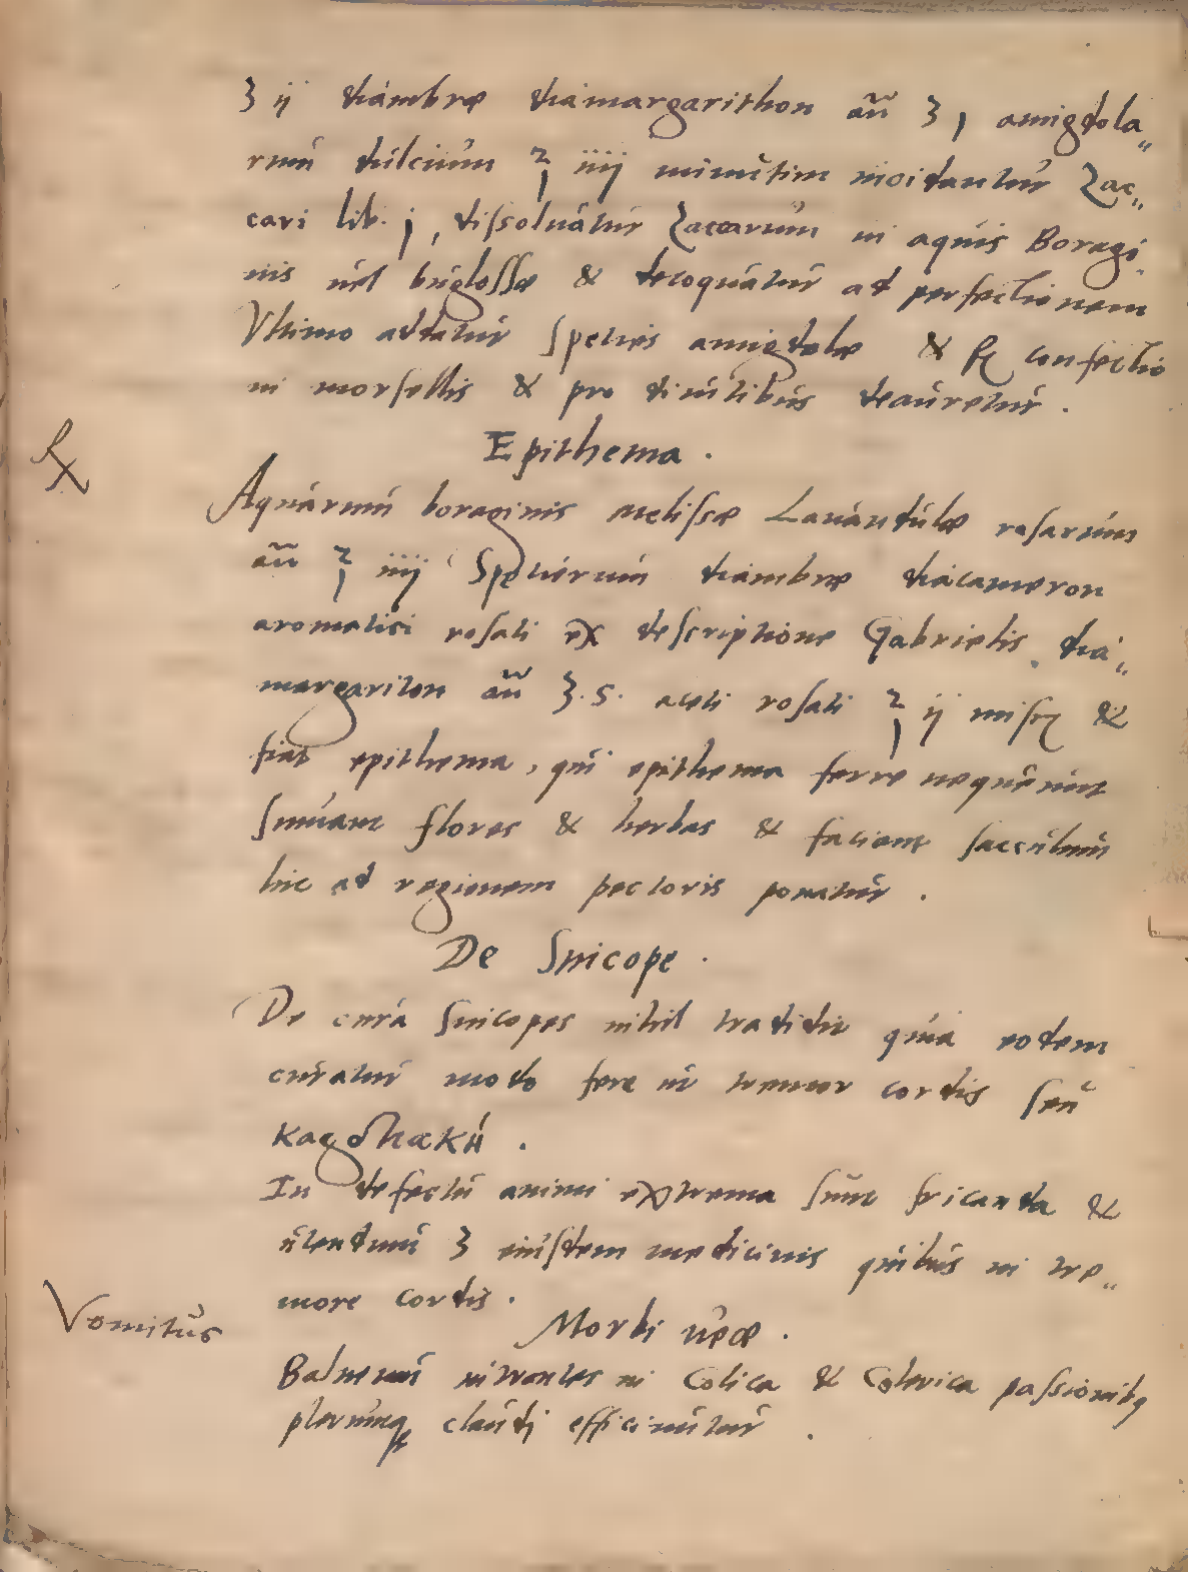 ʒ ij diambræ diamargarithon añ ʒ j amigdola„
rum dulcium ℥ iiij minutim incidantur Zac„
cari lib. j, dissoluatur Zaccarum in aquis Boragi
nis uel buglossæ & decoquatur ad perfectionem
Vltimo addatur species amigdolæ & fc confectio
in morsellis & pro diuitibus deauretur .
Epithema .
℞
Aquarum boraginis melissæ Lauandulæ rosarum
añ ℥ iiij Specierum diambræ diacameron
aromatici rosati ex descriptione Gabrielis dia„
margariton añ ʒ.s. aceti rosati ℥ ij misc &
fiat epithema, qui epithema ferre nequeunt
sumant flores & herbas & faciant sacculum
hic ad regionem pectoris ponatur .
De Sincope .
De cura sincopes nihil tradidit quia eodem
curatur modo fere ut tremor cordis seu
καρδιακή .
In defectu animi extrema sunt fricanda &
utendum ʒ eiusdem medicinis quibus in tre„
more cordis .
Vomitus
Morbi .
Balneum intrantes in Colica & Colerica passionibq
plerumq claudi efficiuntur .